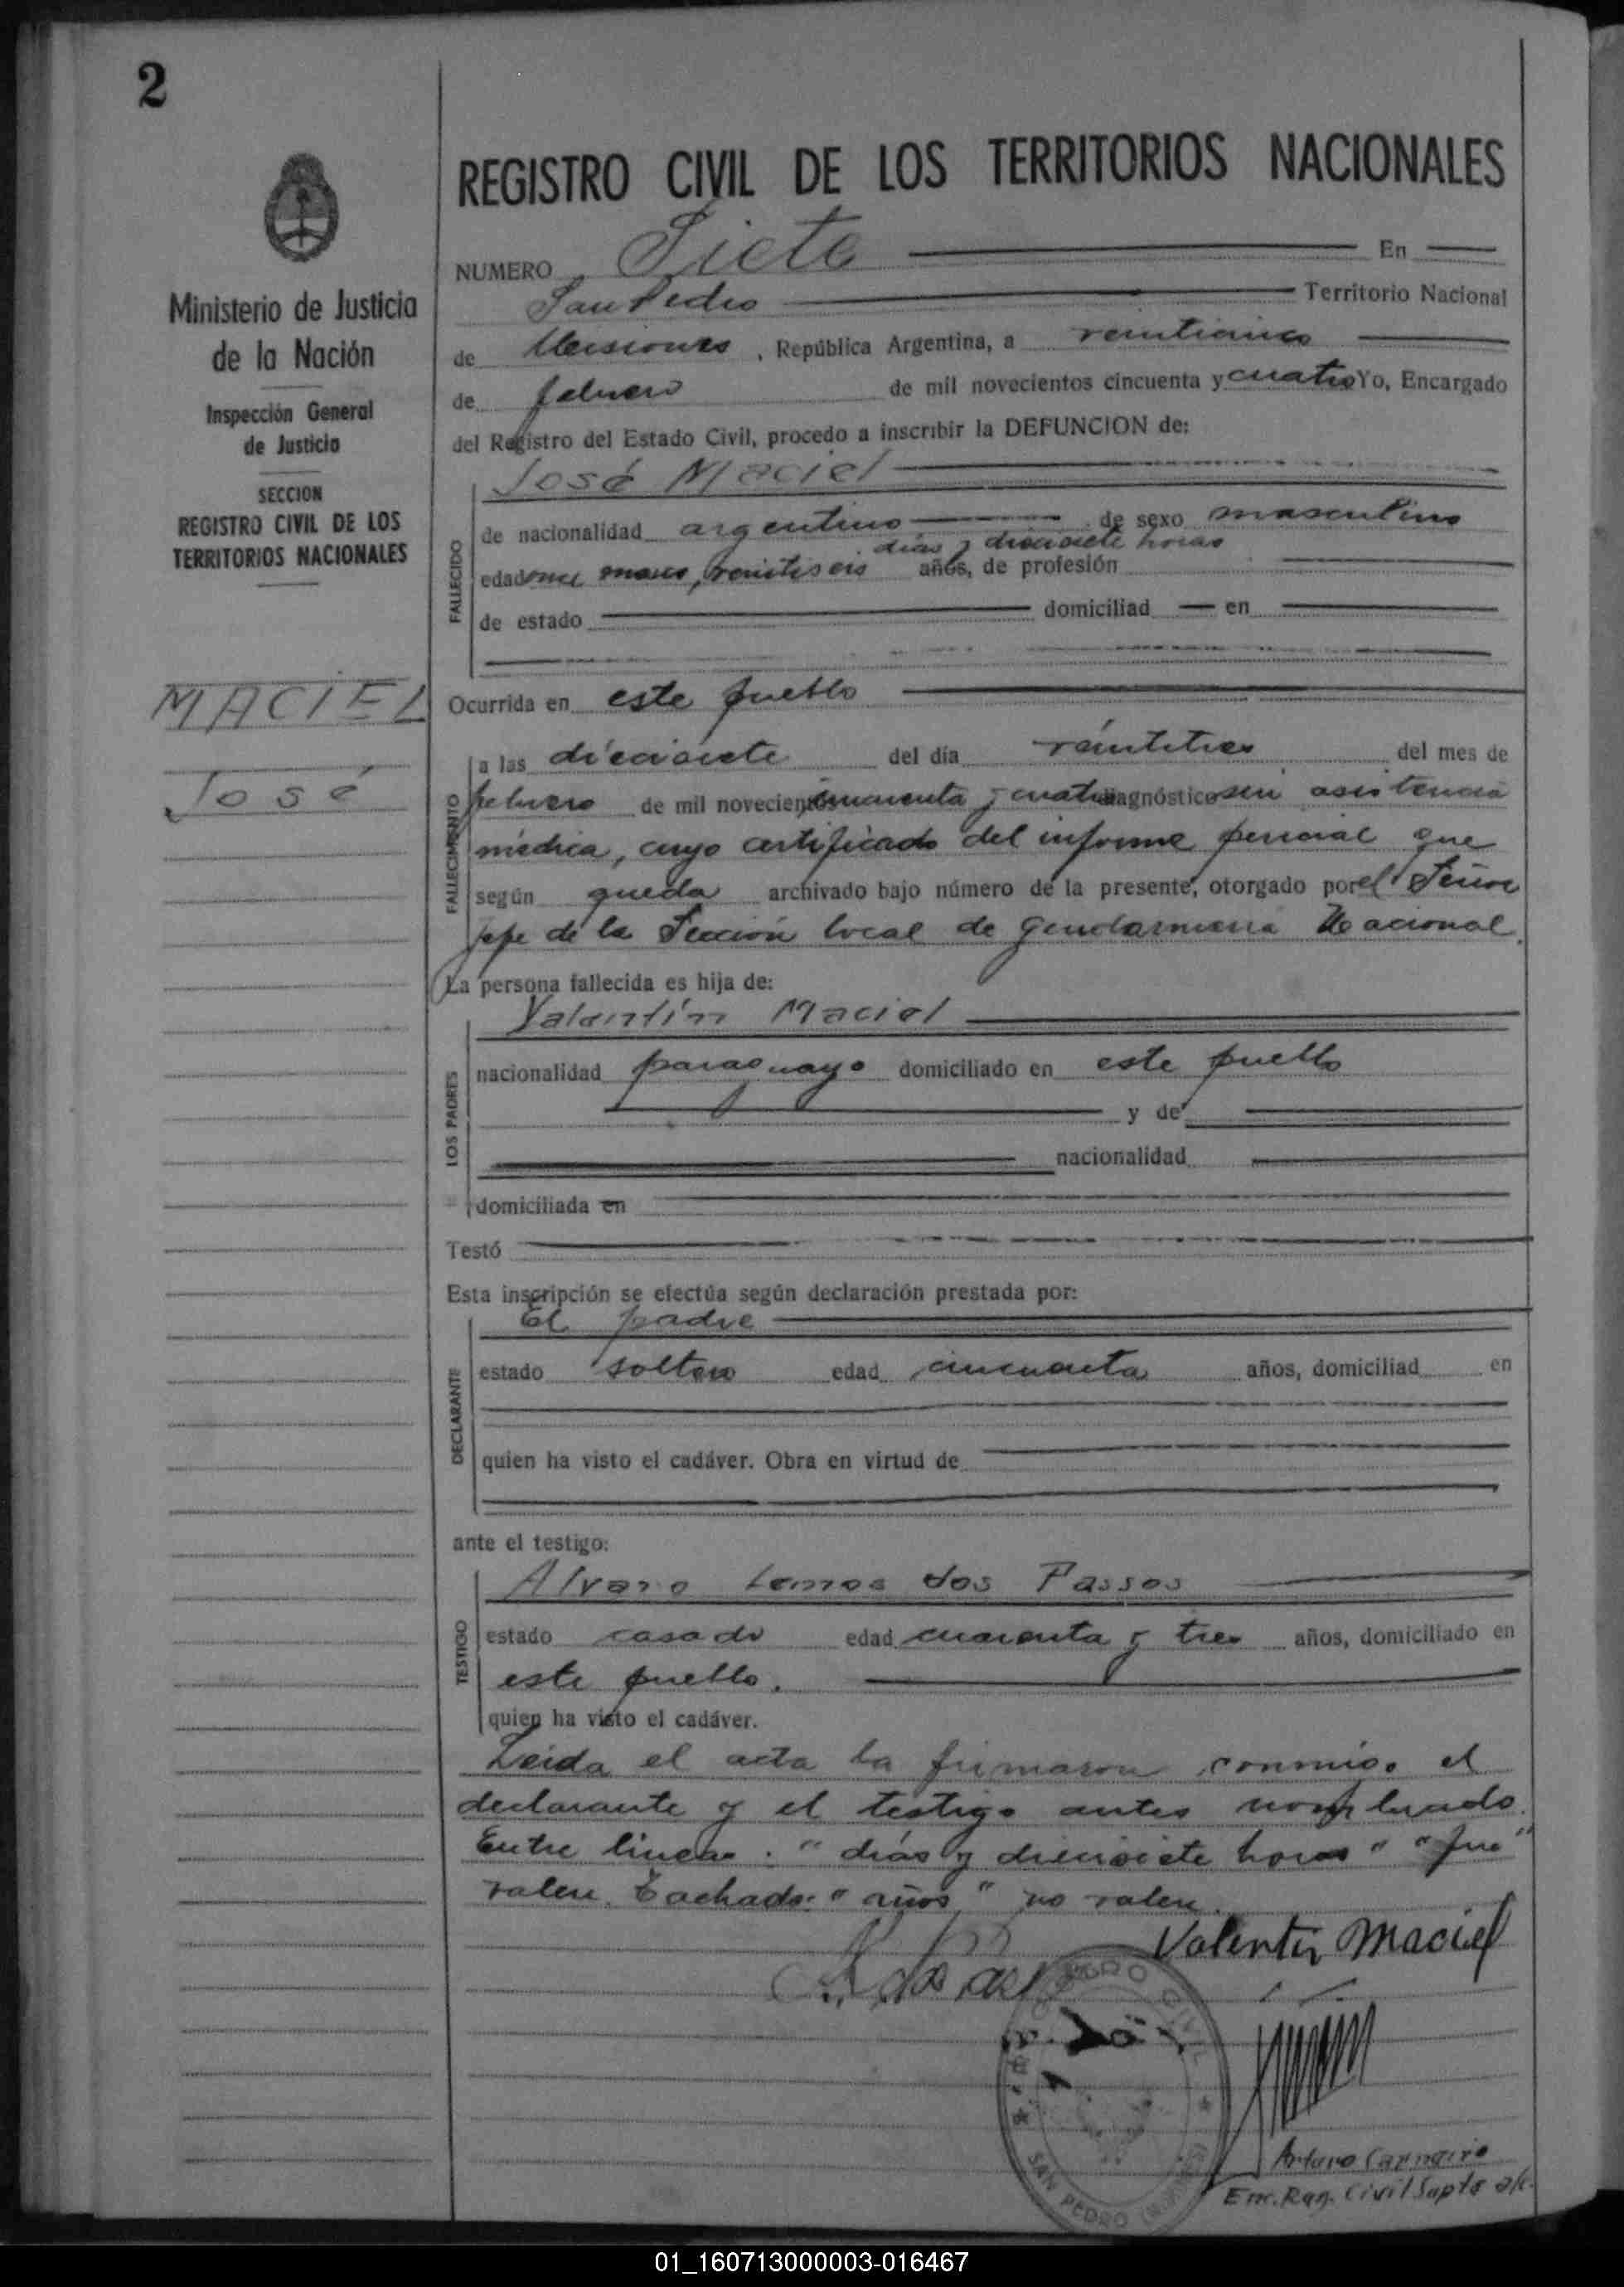 2
REGISTRO CIVIL DE LOS TERRITORIOS NACIONALES
Ministerio de Justicia
de la Nación
Inspección General
de Justicia
SECCION
REGISTRO CIVIL DE LOS
TERRITORIOS NACIONALES
MACIEL
José
NUMERO Siete En
San Pedro Territorio Nacional
de Misiones, República Argentina, a veinticinco
de febrero de mil novecientos cincuenta y cuatro Yo, Encargado
del Registro del Estado Civil, procedo a inscribir la DEFUNCION de:
José Maciel
FALLECIDO
de nacionalidad argentino de sexo masculino
días y diecisiete horas
edad once meses, veintiseis años, de profesión
de estado domiciliad en
Ocurrida en este pueblo
FALLECIMIENTO
a las diecisiete del día veintitres del mes de
febrero de mil novecientos cincuenta y cuatro diagnóstico sin asistencia
médica, cuyo certificado del informe pericial que
según queda archivado bajo número de la presente, otorgado por el Señor
Jefe de la Sección local de Gendarmeria Nacional.
La persona fallecida es hija de:
Valentín Maciel
LOS PADRES
nacionalidad paraguayo domiciliado en este pueblo
y de
nacionalidad
domiciliada en
Testó
Esta inscripción se efectúa según declaración prestada por:
El padre
DECLARANTE
estado soltero edad cincuenta años, domiciliad en
quien ha visto el cadáver. Obra en virtud de
ante el testigo:
Alvaro Lemos dos Passos
TESTIGO
estado casado edad cuarenta y tres años, domiciliado en
este pueblo.
quien ha visto el cadáver.
Leida el acta la firmaron conmigo el
declarante y el testigo antes nombrado.
Entre lineas: " días y diecisiete horas " " fue "
valen. Tachado: " años " no valen.
Valentin Maciel
REGISTRO CIVIL
SAN PEDRO (MISIONES)
Arturo
Enc. Reg. Civil Supte a/c.
01_160713000003-016467